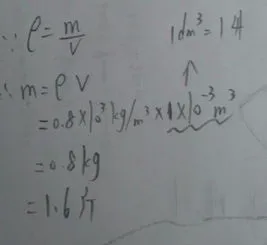 ∵ ρ = m/V
1dm³ = 1升
∴ m = ρV
= 0.8×10³kg/m³ × 1×10⁻³m³
= 0.8kg
= 1.6斤